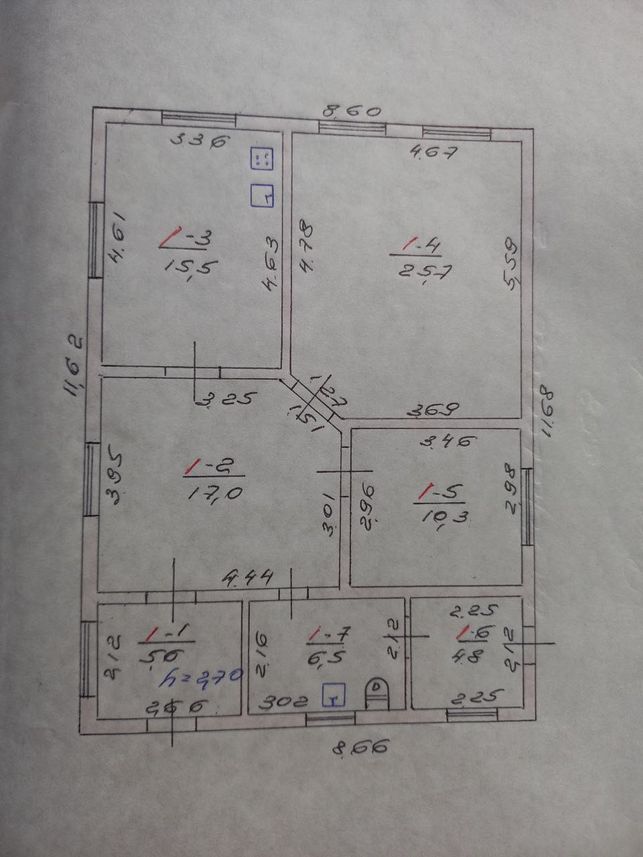 8.60
3.36
4.67
4.61
1-3
15,5
4.63
4.78
1-4
25,7
5,59
11,62
3.25
1.27
1.51
3.69
3.46
11.68
3.95
1-2
17,0
3.01
2.96
1-5
10,3
2.98
4.44
2,12
1-1
5.6
h=2,70
2.66
2.16
1-7
6,5
3.02
2.12
2.25
1-6
4.8
2,12
2.25
8.66